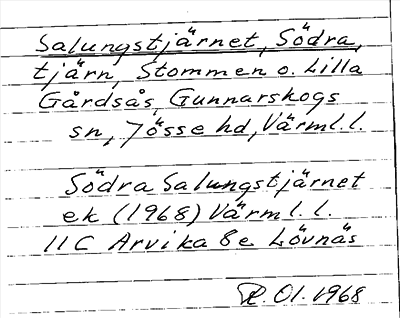 Salungstjärnet, Södra,
tjärn, Stommen o. Lilla
Gårdsås, Gunnarskogs
sn, Jösse hd, Värml. l.
Södra Salungstjärnet
ek (1968) Värml. l.
11C Arvika 8e Lövnäs
R. Ol. 1968